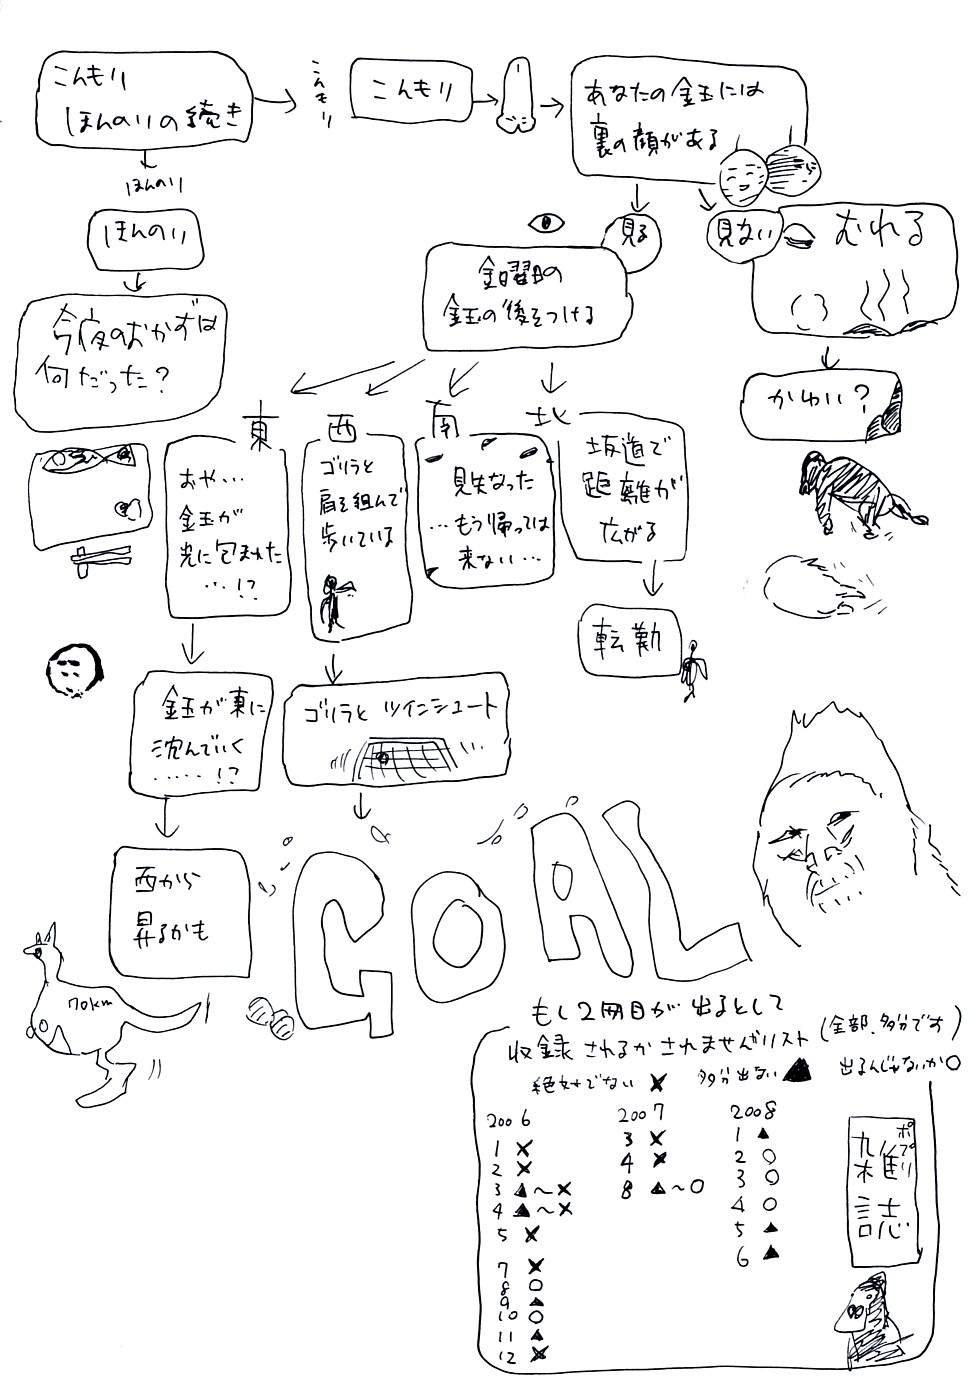 こんもり
ほんのりの続き
こんもり
こんもり
あなたの金玉には
裏の顔がある
ほんのり
ほんのり
見る
見ない
むれる
金曜日の
金玉の後をつける
今夜のおかずは
何だった?
かわいい?
東
西
南
北
おや…
金玉が
光に包まれた
…!?
ゴリラと
肩を組んで
歩いている
見失なった
…もう帰っては
来ない…
坂道で
距離が
広がる
転勤
金玉が東に
沈んでいく
……!?
ゴリラと ツインシュート
西から
昇るかも
GOAL
70km
もし2冊目が出るとして
収録されるかされませんがリスト(全部、多分です)
絶対でない ×
多分出ない ▲
出るんじゃないか○
2006
1 ×
2 ×
3 ▲〜×
4 ▲〜×
5 ×
7 ×
8 ○
9 ▲
10 ○
11 ▲
12 ×
2007
3 ×
4 ×
8 ▲〜○
2008
1 ▲
2 ○
3 ○
4 ○
5 ▲
6 ▲
ポプリ
雑誌